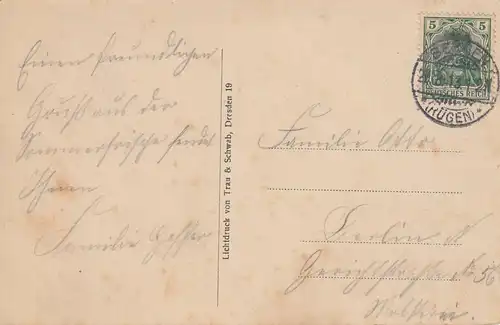 Einen freundlichen
Gruß aus der
Sommerfrische sendet
Ihnen
Familie
Lichtdruck von Trau & Schwab, Dresden 19
5
DEUTSCHES REICH
(RÜGEN)
Familie Otto
Berlin N
Gerichtstrasse No 56